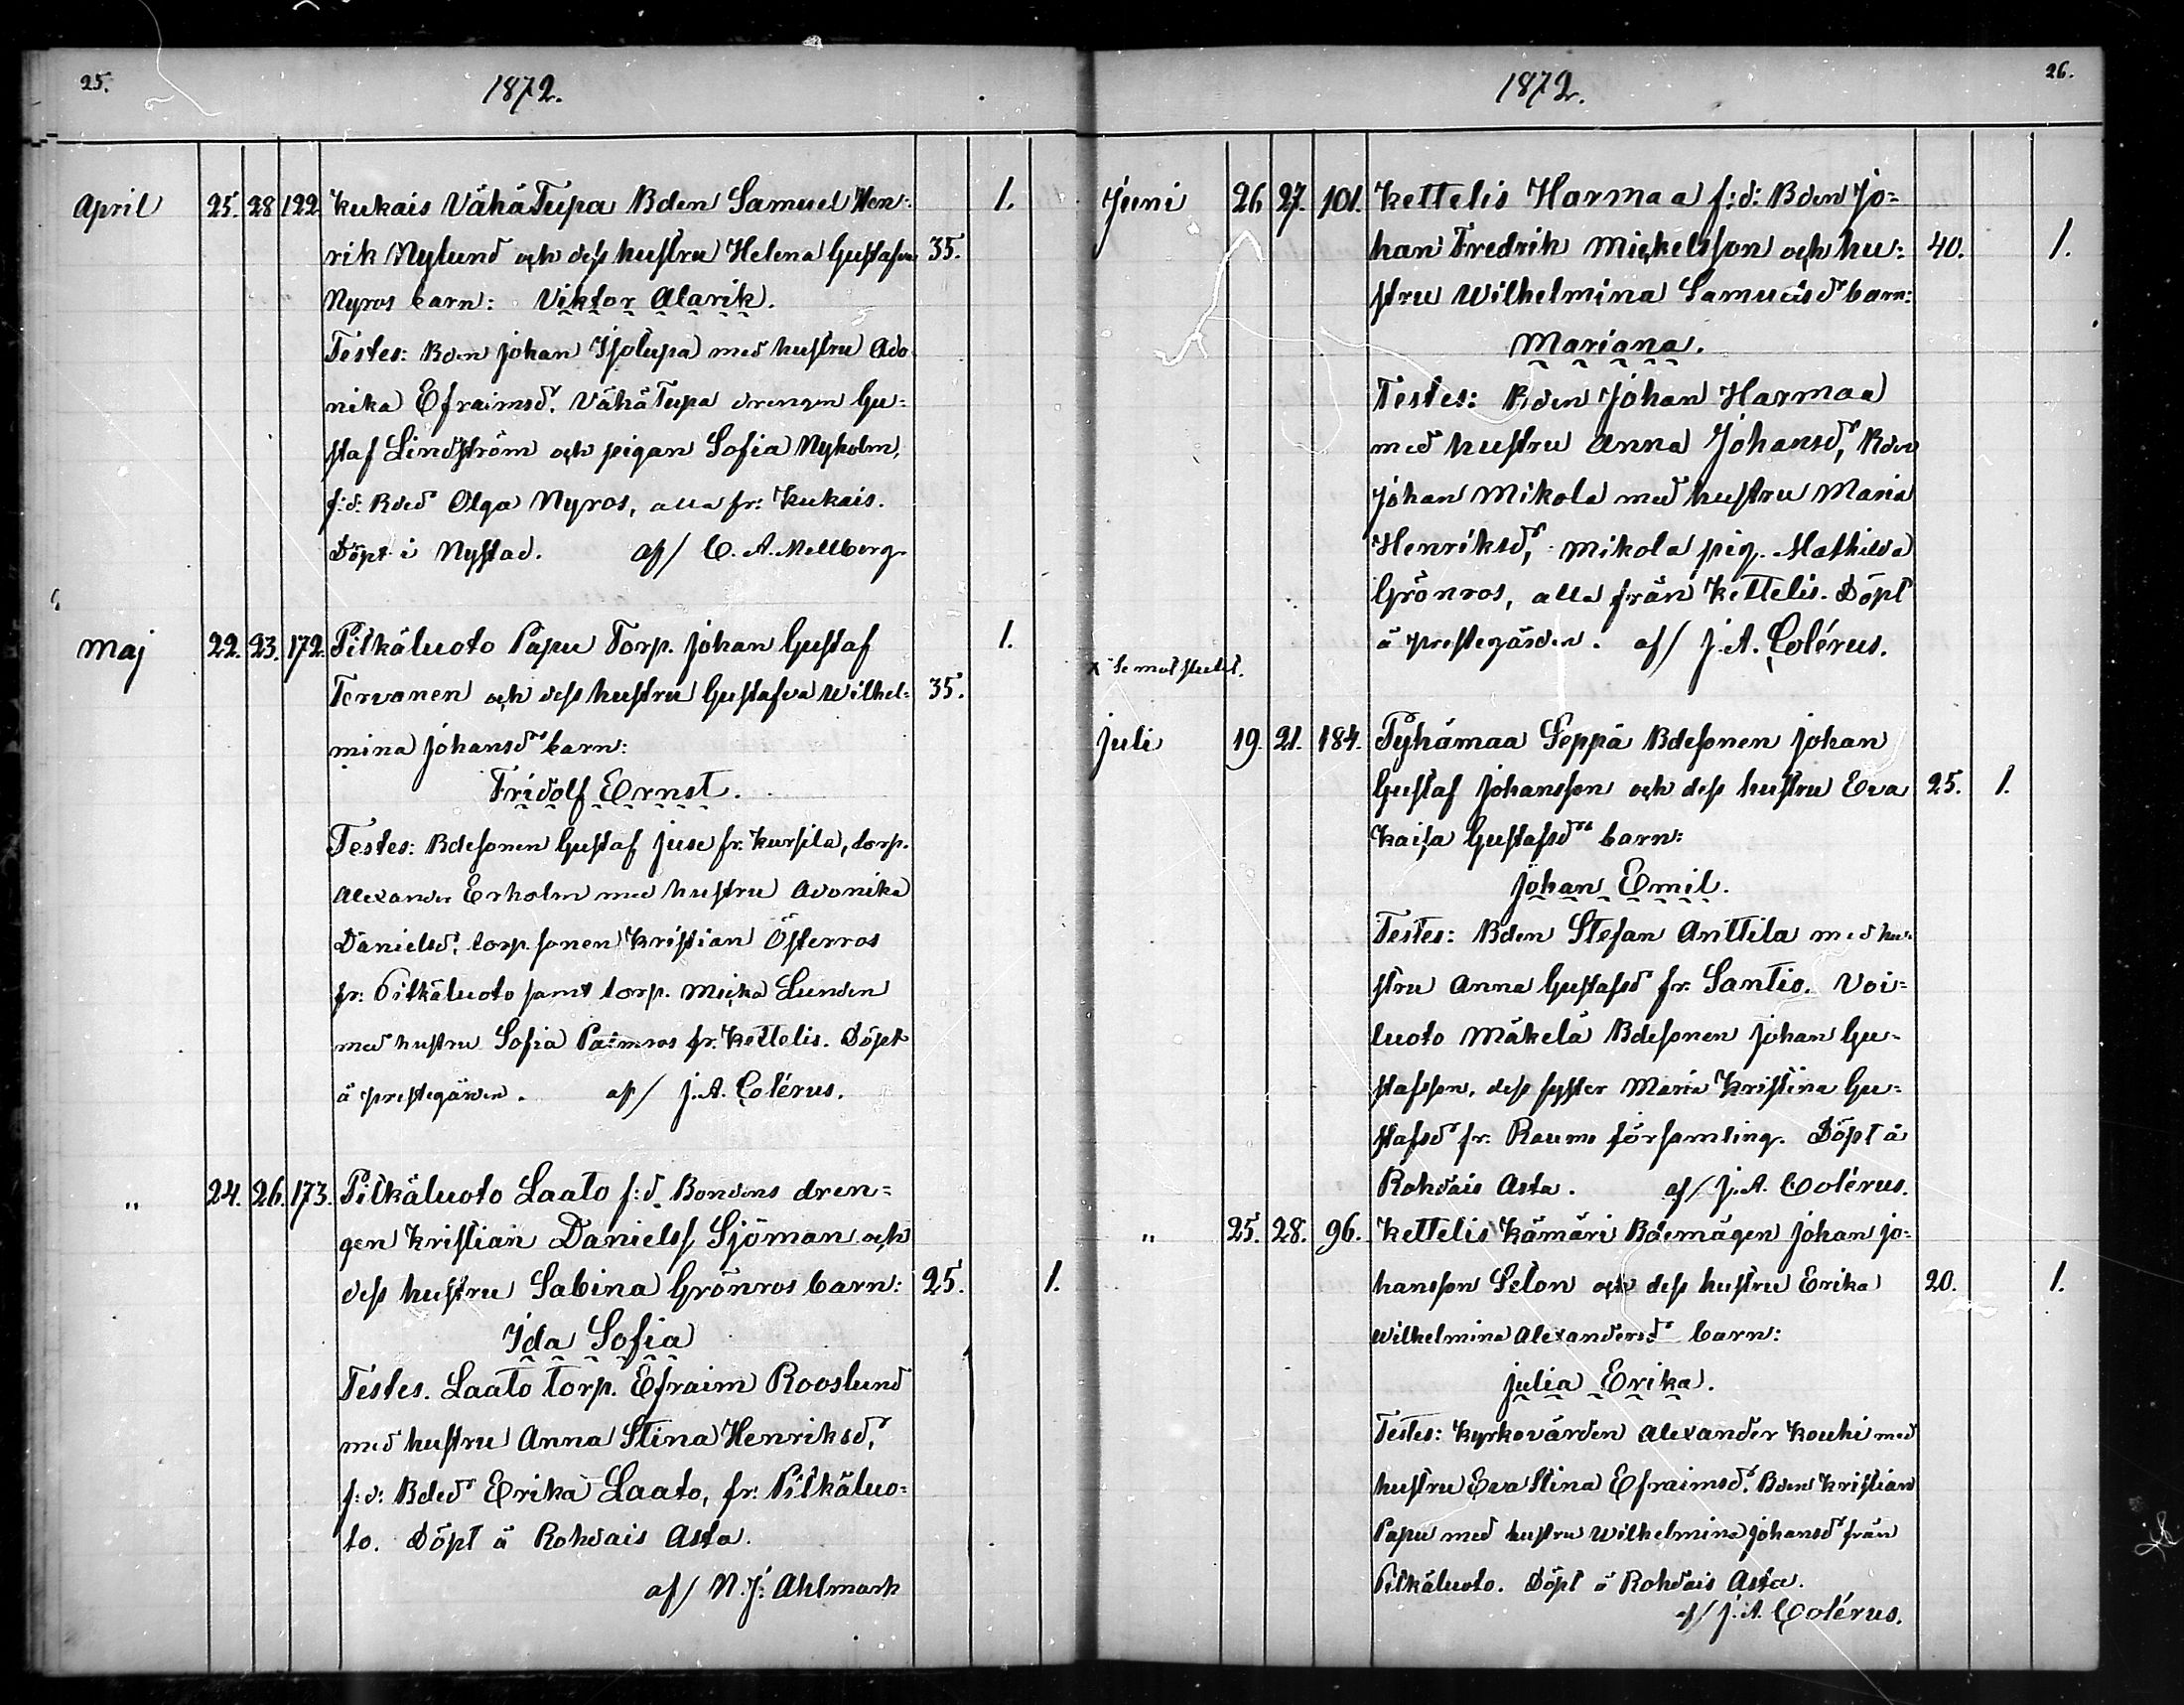 25.
1872.
April 25. 28 122 Kukais VähäTupa Bden Samuel Hen: 1.
rik Nylund och dess hustru Helena Gustafva 35.
Nyros barn: Viktor Alarik.
Testes: Bden Johan Isotupa med hustru Ado
nika Efraimsdr. VähäTupa drengen Gu:
staf Lindström och pigan Sofia Nyholm,
f:d: Bded Olga Nyros, alla fr: Kukais.
Döpt i Nystad. af/ C. A. Mellberg.
Maj 22. 23. 172. Pitkäluoto Papu Torp. Johan Gustaf 1.
Tervonen och dess hustru Gustafva Wilhel: 35.
mina Johansdr barn:
Fridolf Ernst.
Testes: Bdesonen Gustaf Juse fr: Kursila, torp.
Alexander Erholm med hustru Adonika
Danielsdr. torp. sonen Kristian Österros
fr: Pitkäluoto samt torp. Micka Lunden
med hustru Sofia Palmros fr. Kettelis. Döpt
å prestegården. af/ J. A. Colérus.
" 24. 26. 173. Pitkäluoto Laato f:d. Bondens dren=
gen Kristian Danielss. Sjöman och
dess hustru Sabina Grönros barn: 25. 1.
Ida Sofia
Testes. Laato torp. Efraim Rooslund
med hustru Anna Stina Henriksdr.
f:d: Bded Erika Laato, fr: Pitkäluo=
to. Döpt å Rohdais Asta.
af/ N. J: Ahlmark
26.
1872.
Juni 26 27. 101. Kettelis Harmaa f:d: Bden Jo=
han Fredrik Mickelsson och hu: 40. 1.
stru Wilhelmina Samuelsdr barn:
Mariana.
Testes: Bden Johan Harmaa
med hustru Anna Johansdr, Bden
Johan Mikola med hustru Maria
Henriksdr, Mikola pig. Mathilda
Grönros, alla från Kettelis. Döpt
å prestegården. af/ J. A. Colérus.
x Se motstulet.
Juli 19. 21. 184. Pyhämaa Seppä Bdesonen Johan
Gustaf Johansson och dess hustru Eva 25. 1.
Kaisa Gustafsdr barn:
Johan Emil.
Testes: Bden Stefan Anttila med hu:
stru Anna Gustafsd fr. Santio. Voi=
luoto Mäkelä Bdesonen Johan Gu=
stafsson, dess syster Maria Kristina Gu=
stafsdr fr. Raumo församling. Döpt å
Rohdais Asta. af/ J. A. Colérus.
" 25. 28. 96. Kettelis Kämäri Bdemågen Johan Jo=
hansson Selon och dess hustru Erika 20. 1.
Wilhelmina Alexandersdr barn:
Julia Erika.
Testes: Kyrkovärden Alexander Kouhi med
hustru Eva Stina Efraimsdr. Bden Kristian
Papu med hustru Wilhelmina Johansdr från
Pitkäluoto. Döpt å Rohdais Asta.
af/ J. A. Colérus.